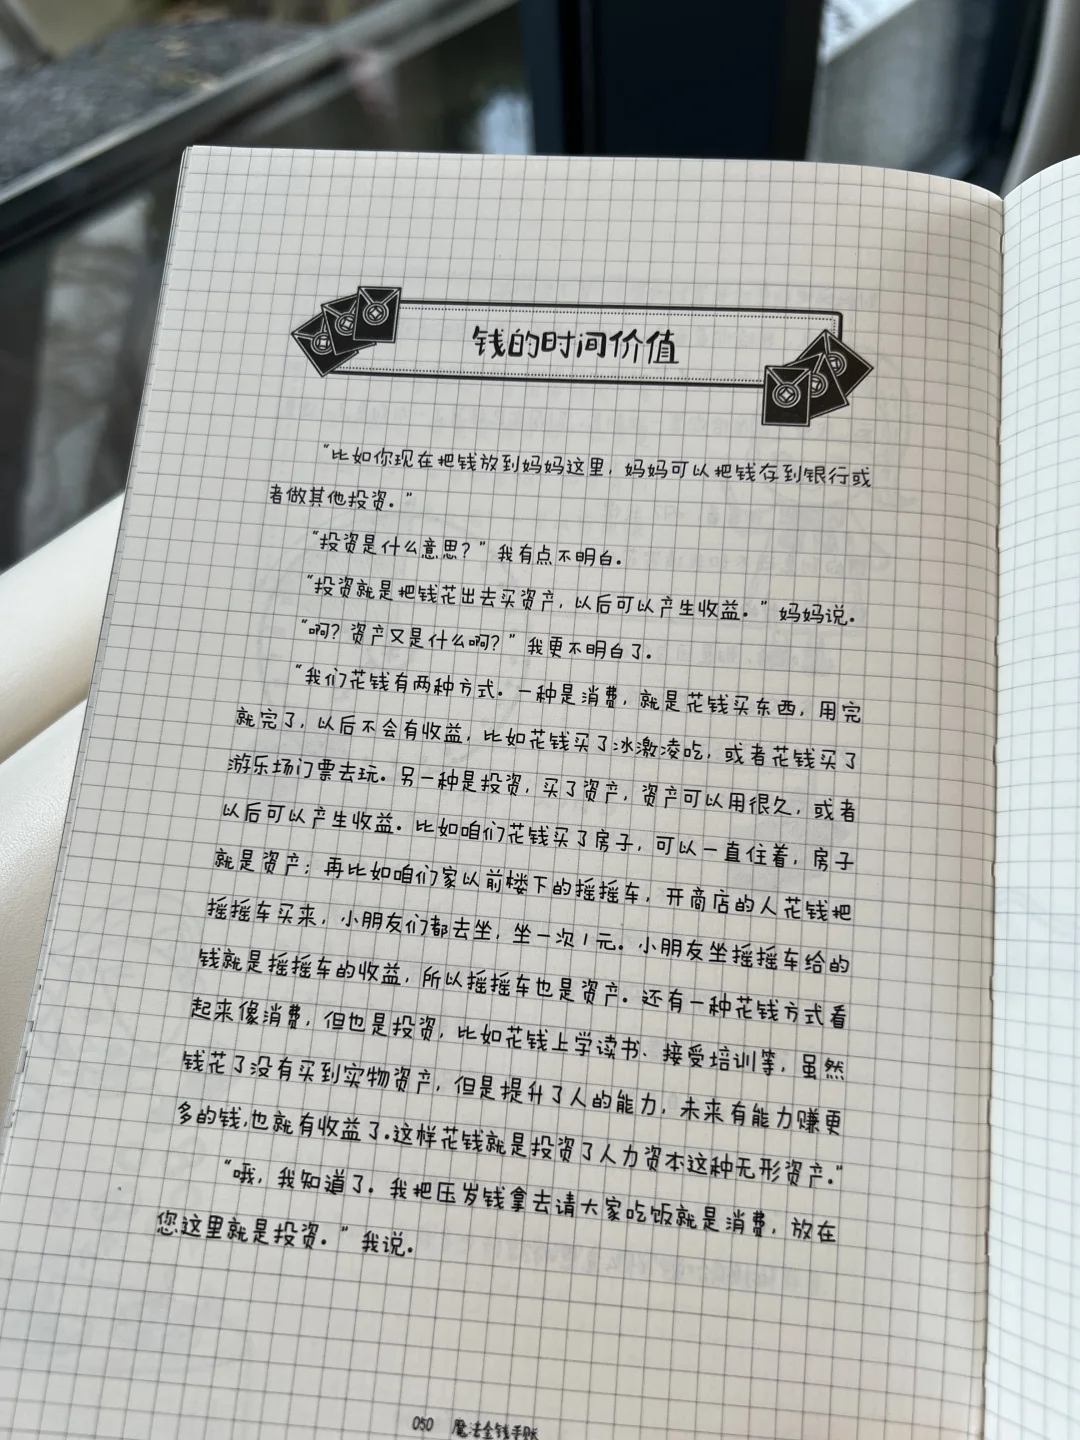 钱的时间价值
“比如你现在把钱放到妈妈这里，妈妈可以把钱存到银行或
者做其他投资。”
“投资是什么意思？”我有点不明白。
“投资就是把钱花出去买资产，以后可以产生收益。”妈妈说。
“啊？资产又是什么啊？”我更不明白了。
“我们花钱有两种方式。一种是消费，就是花钱买东西，用完
就完了，以后不会有收益，比如花钱买了冰激凌吃，或者花钱买了
游乐场门票去玩。另一种是投资，买了资产，资产可以用很久，或者
以后可以产生收益。比如咱们花钱买了房子，可以一直住着，房子
就是资产；再比如咱们家以前楼下的摇摇车，开商店的人花钱把
摇摇车买来，小朋友们都去坐，坐一次1元。小朋友坐摇摇车给的
钱就是摇摇车的收益，所以摇摇车也是资产。还有一种花钱方式看
起来像消费，但也是投资，比如花钱上学读书、接受培训等，虽然
钱花了没有买到实物资产，但是提升了人的能力，未来有能力赚更
多的钱，也就有收益了。这样花钱就是投资了人力资本这种无形资产。”
“哦，我知道了。我把压岁钱拿去请大家吃饭就是消费，放在
您这里就是投资。”我说。
050 魔法金钱手账